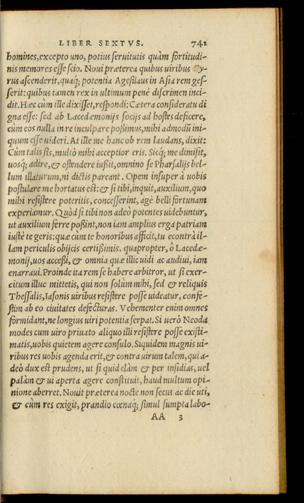 LIBER SEXTVS. 741
homines, excepto uno, potius seruitutis quàm fortitudi-
nis memores esse scio. Noui præterea quibus uiribus Cy-
rus ascenderit, quaq; potentia Agesilaus in Asia rem ges-
serit: quibus tamen rex in ultimum penè discrimen inci-
dit. Hæc cùm ille dixisset, respondi: Cætera consideratu di
gna esse: sed ab Lacedæmonijs socijs ad hostes deficere,
cùm eos nulla in re inculpare possimus, mihi admodū ini-
quum esse uideri. At ille me hanc ob rem laudans, dixit:
Cùm talis sis, multò mihi acceptior eris. Sicq; me dimisit,
uosq; adire, & ostendere iussit, omnino se Pharsalijs bel-
lum illaturum, ni dictis pareant. Opem insuper à uobis
postulare me hortatus est: & si tibi, inquit, auxilium, quo
mihi resistere poteritis, concesserint, age belli fortunam
experiamur. Quòd si tibi non adeò potentes uidebuntur,
ut auxilium ferre possint, non iam amplius erga patriam
iustè te geris: quæ cùm te honoribus afficit, tu econtrà il-
lam periculis obijcis certissimis. quapropter, ô Lacedæ-
monij, uos accessi, & omnia quæ illic uidi ac audiui, iam
enarraui. Proinde ita rem se habere arbitror, ut si exer-
citum illuc mittetis, qui non solùm mihi, sed & reliquis
Thessalis, Iasonis uiribus resistere posse uideatur, confe-
stim ab eo ciuitates defecturas. Vehementer enim omnes
formidant, ne longius uiri potentia serpat. Si uerò Neoda
modes cum uiro priuato aliquo illi resistere posse existi-
matis, uobis quietem agere consulo. Siquidem magnis ui-
ribus res uobis agenda erit, & contra uirum talem, qui a-
deò dux est prudens, ut si quid clàm & per insidias, uel
palàm & ui aperta agere constituit, haud multum opi-
nione aberret. Nouit præterea nocte non secus ac die uti,
& cùm res exigit, prandio cœnaq; simul sumpta labo-
AA 3